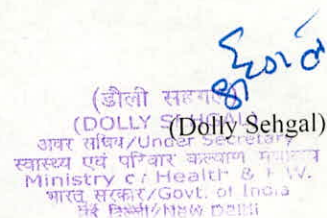 (डौली सहगल)
(DOLLY SEHGAL)
(Dolly Sehgal)
अवर सचिव/Under Secretary
स्वास्थ्य एवं परिवार कल्याण मंत्रालय
Ministry of Health & F.W.
भारत सरकार/Govt. of India
नई दिल्ली/New Delhi